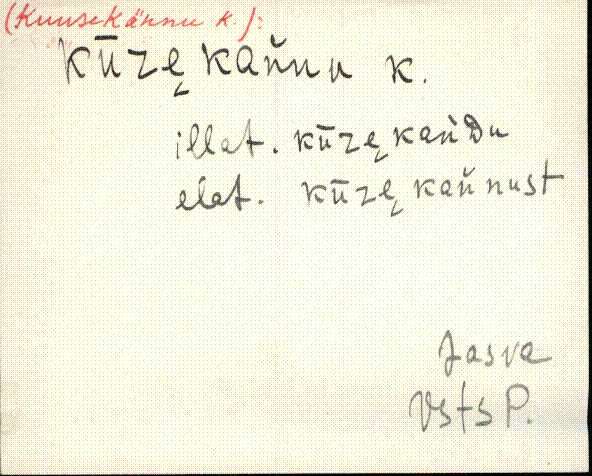 (Kuusekännu k.):
kūzę kan̆nu k.
illat. kūzę kan̆Du
elat. kūzę kan̆nust
Jasva
Vsts P.